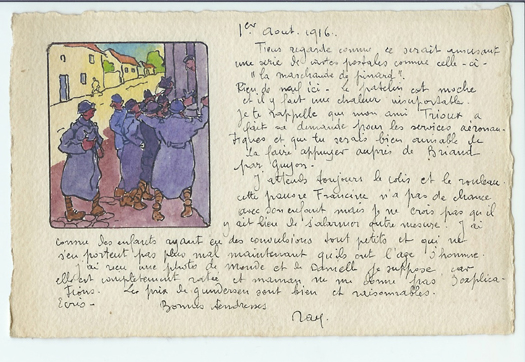 1er Aout. 1916.
Tiens regarde comme ce serait amusant
une série de cartes postales comme celle-là -
"la marchande de pinard".
Rien de mal ici - Le patelin est moche
et il y fait une chaleur insupportable.
Je te rappelle que mon ami Trioux a
fait sa demande pour les services aéronau-
tiques et que tu serais bien aimable de
la faire appuyer auprès de Briand
par Guyon.
J'attends toujours le colis et le rouleau
cette pauvre Francine n'a pas de chance
avec son enfant mais je ne crois pas qu'il
y ait lieu de s'alarmer outre mesure. J'ai
connu des enfants ayant eu des convulsions tout petits et qui ne
s'en portent pas plus mal maintenant qu'ils ont l'âge d'homme.
J'ai reçu une photo de Monde et le je suppose car
elle est complètement ratée et maman ne me donne pas d'explica-
tions. Les prix de Gundersen sont bien et raisonnables.
Ecris - Bonnes tendresses
Ray.